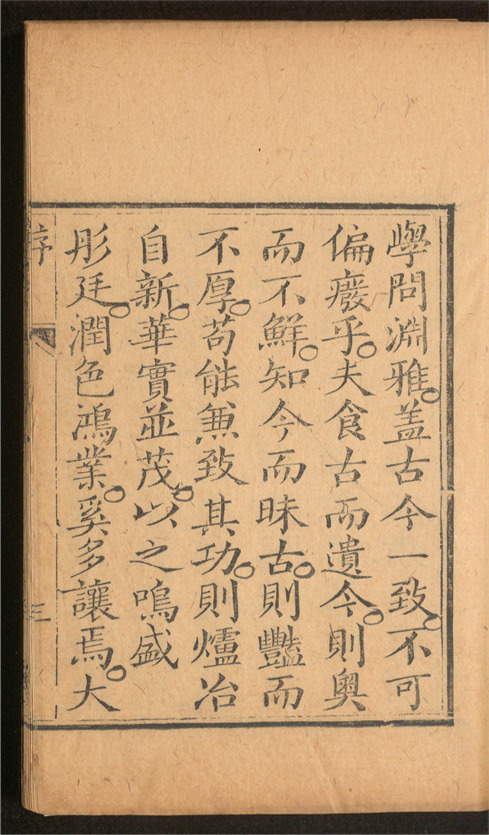 學問淵雅。盖古今一致。不可
偏廢乎。夫食古而遺今。則奧
而不鮮。知今而昧古。則豔而
不厚。苟能兼致其功。則爐冶
自新。華實並茂。以之鳴盛
彤廷。潤色鴻業。奚多讓焉。大
序
三